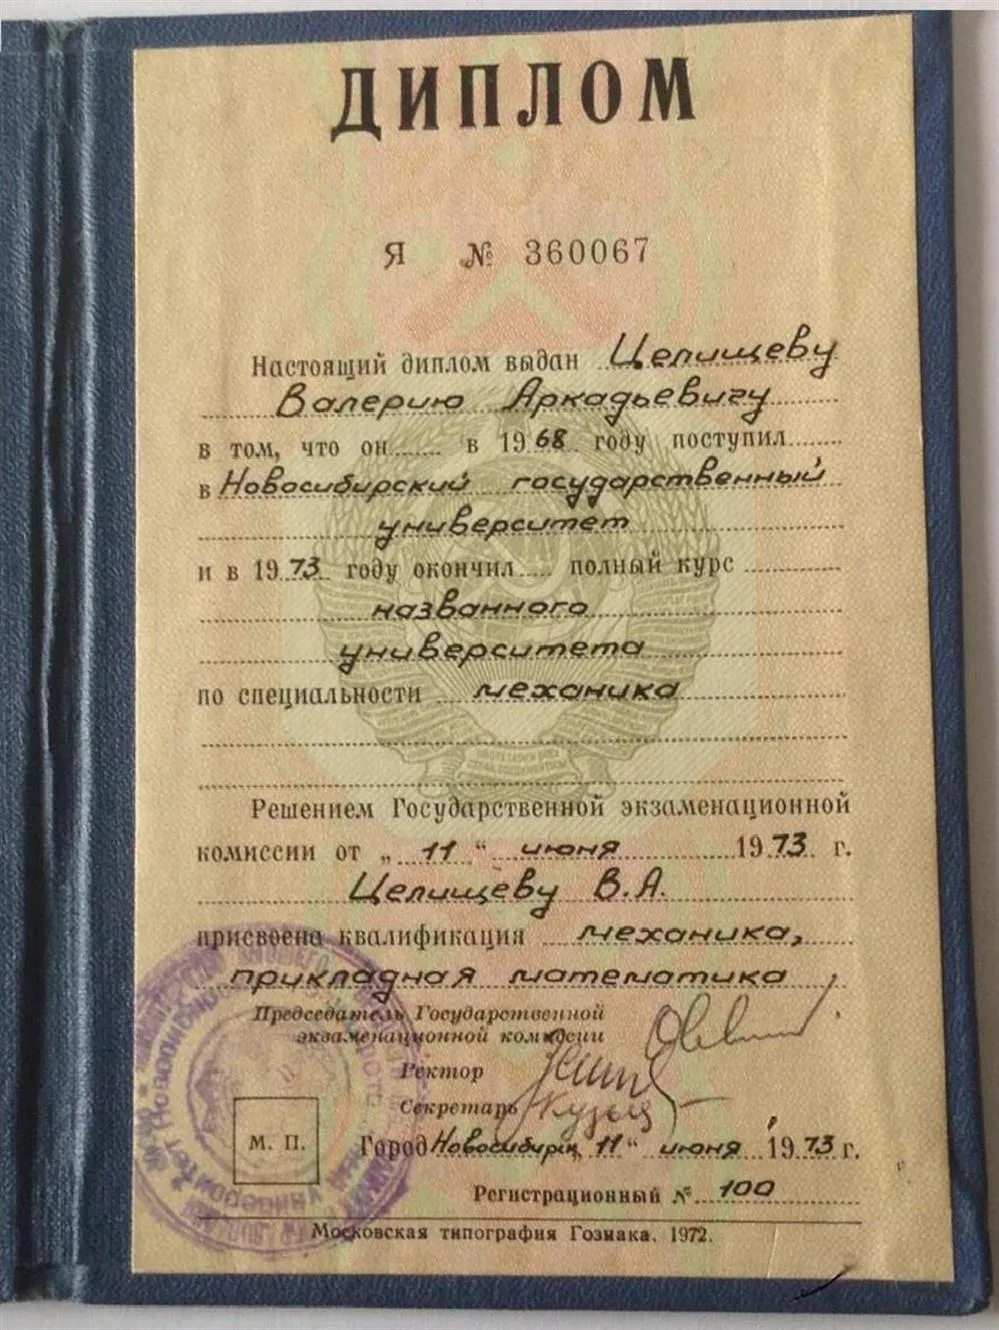 ДИПЛОМ
Я № 360067
Настоящий диплом выдан Целищеву
Валерию Аркадьевичу
в том, что он в 1968 году поступил
в Новосибирский государственный
университет
и в 1973 году окончил полный курс
названного
университета
по специальности механика
Решением Государственной экзаменационной
комиссии от „11“ июня 1973 г.
Целищеву В.А.
присвоена квалификация механика,
прикладная математика
Председатель Государственной
экзаменационной комиссии
Ректор
Секретарь
М. П.
Город Новосибирск „11“ июня 1973 г.
Регистрационный № 100
Московская типография Гознака. 1972.